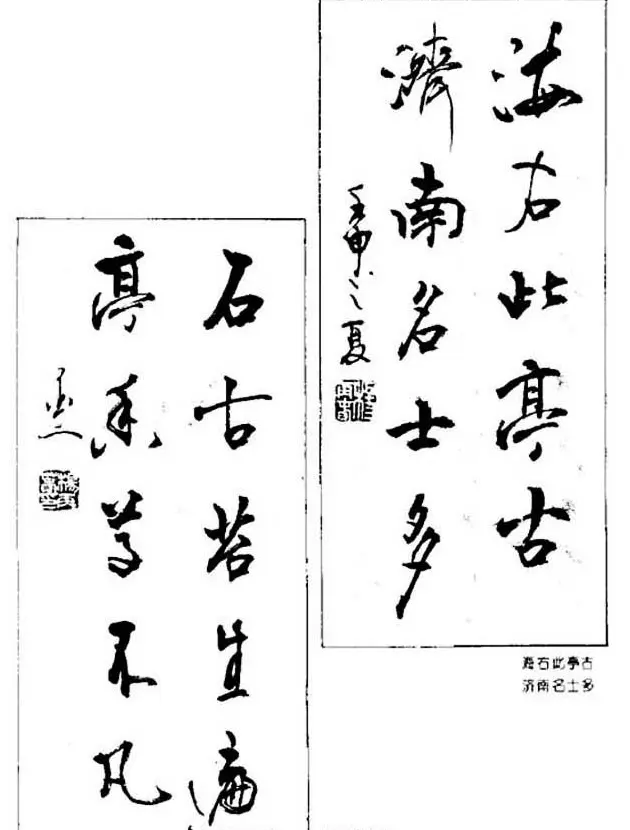 海右此亭古
濟南名士多
壬申之夏
海右此亭古
济南名士多
石古苔生遍
亭香草不凡